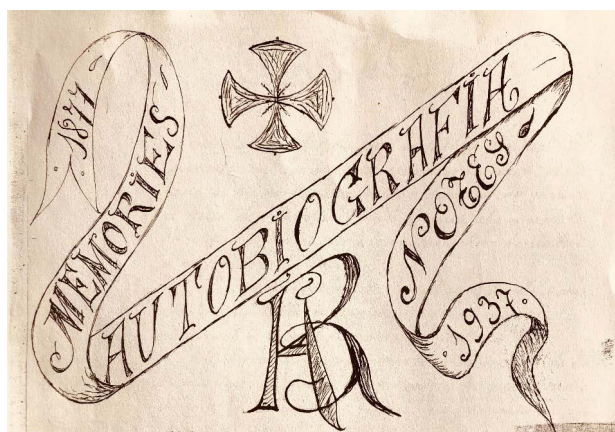 1877
MEMORIES
AUTOBIOGRAFIA
NOTES
1937